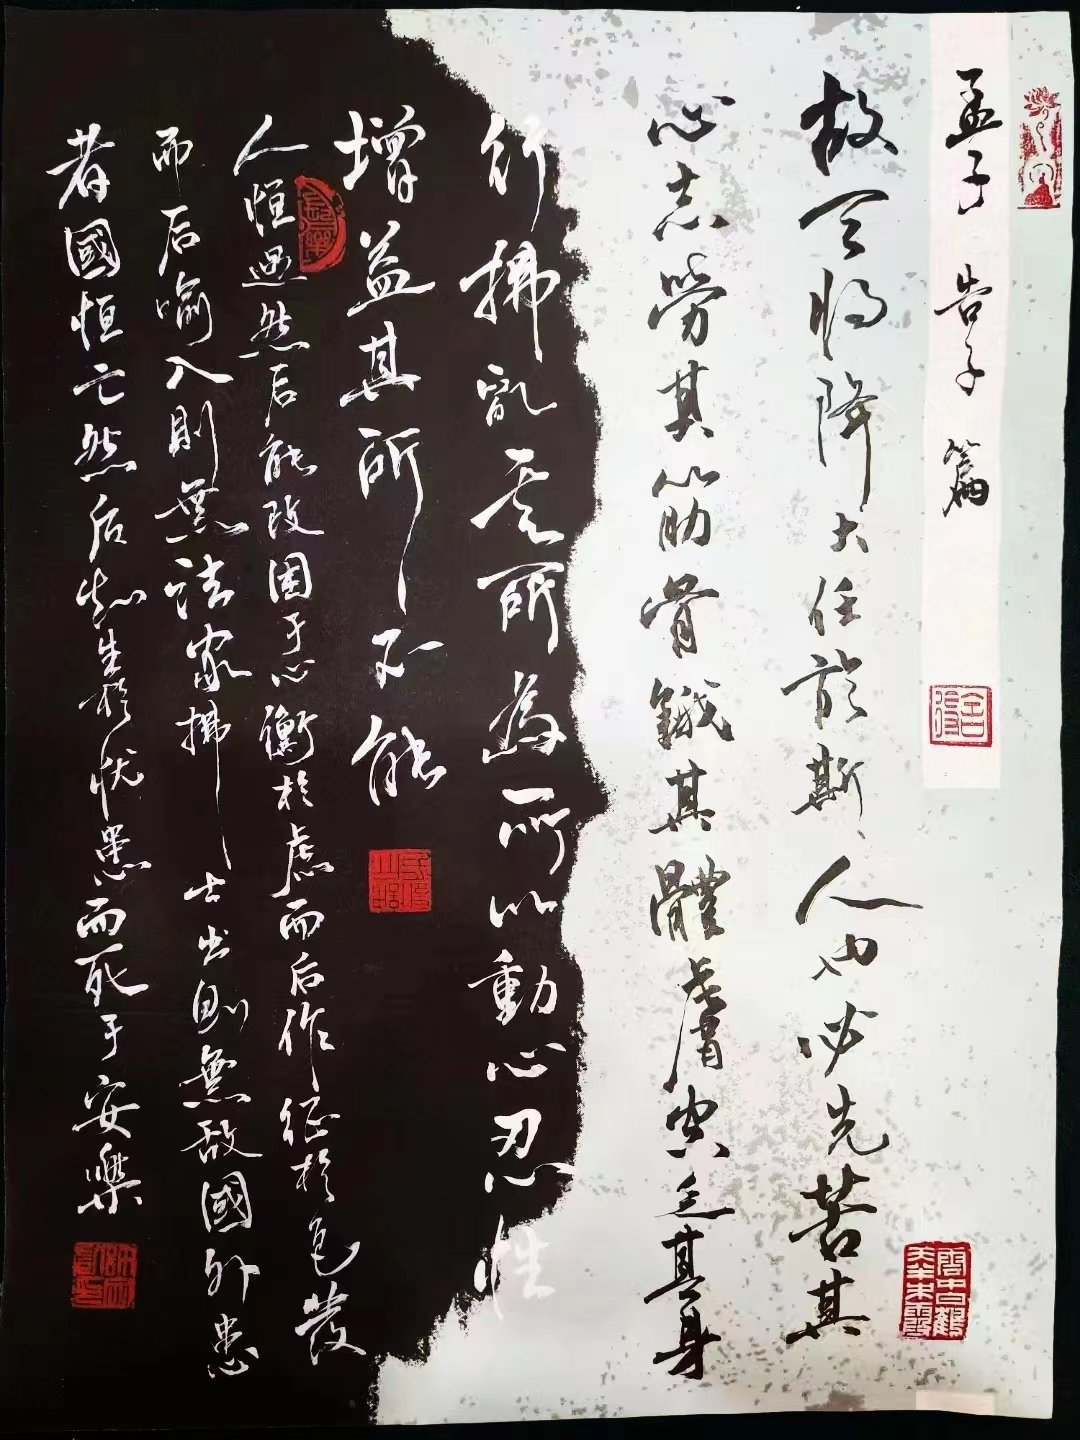 孟子 告子 篇
故天将降大任於斯人也必先苦其
心志勞其筋骨餓其體膚空乏其身
行拂亂其所為所以動心忍性
增益其所不能
人恒過然后能改困于心衡於虑而后作征於色發
而后喻入則無法家拂士出則無敌國外患
者國恒亡然后知生於忧患而死于安樂
長樂
雲中白鶴
天半朱霞